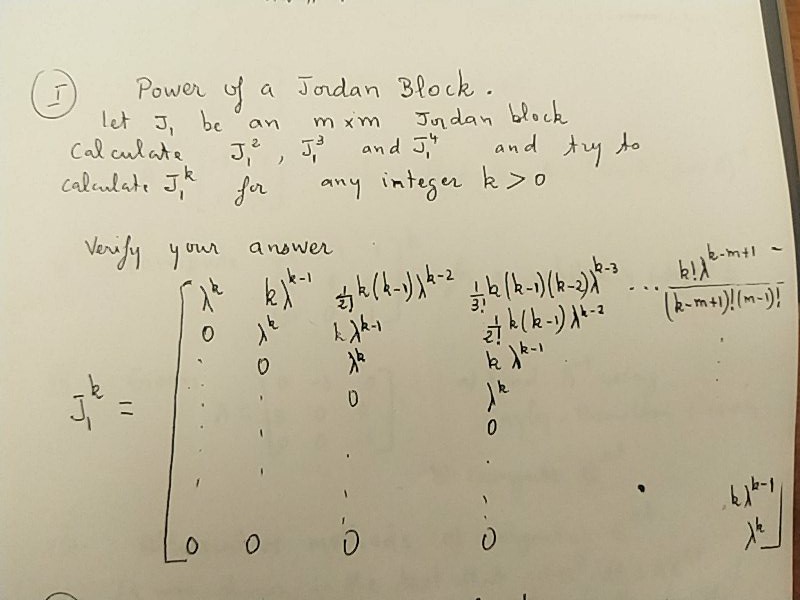 I Power of a Jordan Block.
let J₁ be an m×m Jordan block
Calculate J₁², J₁³ and J₁⁴ and try to
calculate J₁ᵏ for any integer k > 0
Verify your answer
λ^k kλ^{k-1} 1/2! k(k-1)λ^{k-2} 1/3! k(k-1)(k-2)λ^{k-3} ... k!λ^{k-m+1} / (k-m+1)!(m-1)!
0 λ^k kλ^{k-1} 1/2! k(k-1)λ^{k-2}
0 λ^k kλ^{k-1}
J₁ᵏ = 0 λ^k
0
kλ^{k-1}
0 0 0 0 λ^k